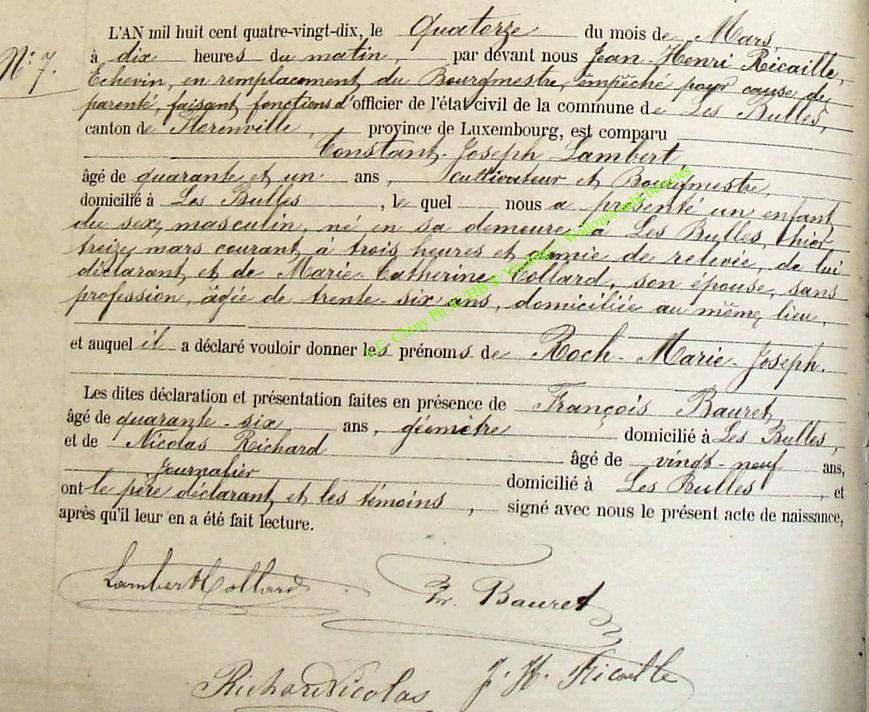 N° 7.
L'AN mil huit cent quatre-vingt-dix, le Quatorze du mois de Mars,
à dix heures du matin, par devant nous Jean Henri Ricaille,
Echevin, en remplacement du Bourgmestre, empêché pour cause de
parenté, faisant fonctions d'officier de l'état civil de la commune de Les Bulles,
canton de Florenville, province de Luxembourg, est comparu
Constant-Joseph Lambert
âgé de quarante et un ans, cultivateur et Bourgmestre,
domicilié à Les Bulles, le quel nous a présenté un enfant
du sexe masculin, né en sa demeure à Les Bulles, hier
treize mars courant, à trois heures et demie de relevée, de lui
déclarant et de Marie-Catherine Collard, son épouse, sans
profession, âgée de trente-six ans, domiciliée au même lieu,
et auquel il a déclaré vouloir donner les prénoms de Roch-Marie-Joseph.
Les dites déclaration et présentation faites en présence de François Bauret,
âgé de quarante-six ans, géomètre domicilié à Les Bulles,
et de Nicolas Richard âgé de vingt-neuf ans,
Journalier domicilié à Les Bulles, et
ont le père déclarant et les témoins, signé avec nous le présent acte de naissance,
après qu'il leur en a été fait lecture.
Lambert Collard Fr. Bauret
Richard Nicolas J. H. Ricaille